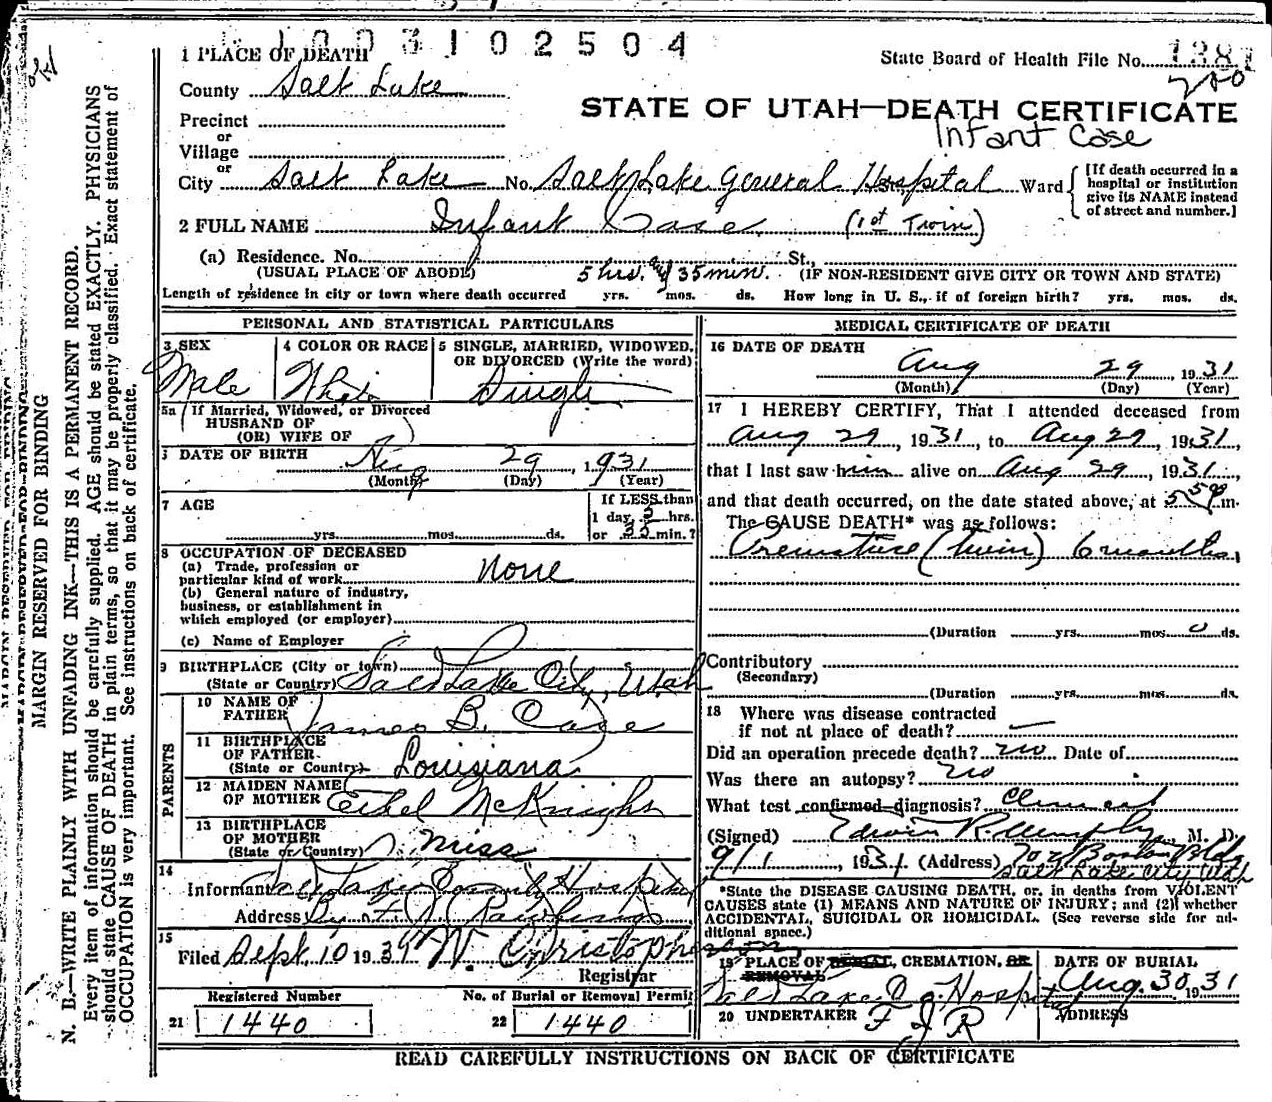 1003102504
1 PLACE OF DEATH
State Board of Health File No. 1381
200
County Salt Lake
STATE OF UTAH—DEATH CERTIFICATE
Infant Case
Precinct
or
Village
or
City Salt Lake No. Salt Lake General Hospital Ward
[If death occurred in a hospital or institution give its NAME instead of street and number.]
2 FULL NAME Infant Case (1st Twin)
(a) Residence. No. St.,
(USUAL PLACE OF ABODE) 5 hrs. 35 min. (IF NON-RESIDENT GIVE CITY OR TOWN AND STATE)
Length of residence in city or town where death occurred yrs. mos. ds. How long in U. S., if of foreign birth? yrs. mos. ds.
PERSONAL AND STATISTICAL PARTICULARS
3 SEX
Male
4 COLOR OR RACE
White
5 SINGLE, MARRIED, WIDOWED,
OR DIVORCED (Write the word)
Single
5a If Married, Widowed, or Divorced
HUSBAND OF
(OR) WIFE OF
DATE OF BIRTH Aug 29, 1931
(Month) (Day) (Year)
7 AGE
yrs. mos. ds.
If LESS than
1 day 5 hrs.
or 35 min.?
8 OCCUPATION OF DECEASED
(a) Trade, profession or
particular kind of work None
(b) General nature of industry,
business, or establishment in
which employed (or employer)
(c) Name of Employer
9 BIRTHPLACE (City or town)
(State or Country) Salt Lake City, Utah
PARENTS
10 NAME OF
FATHER James B. Case
11 BIRTHPLACE
OF FATHER
(State or Country) Louisiana
12 MAIDEN NAME
OF MOTHER Ethel McKnight
13 BIRTHPLACE
OF MOTHER
(State or Country) Miss
14
Informant Salt Lake County Hospital
Address By F. J. Rawlings
15
Filed Sept. 10 1931 W. Christopherson
Registrar
Registered Number
21 1440
No. of Burial or Removal Permit
22 1440
MEDICAL CERTIFICATE OF DEATH
16 DATE OF DEATH
Aug 29, 1931
(Month) (Day) (Year)
17 I HEREBY CERTIFY, That I attended deceased from
Aug 29, 1931, to Aug 29, 1931,
that I last saw him alive on Aug 29, 1931,
and that death occurred, on the date stated above, at m.
The CAUSE DEATH* was as follows:
Premature (twin) 6 months
(Duration yrs. mos. 0 ds.
Contributory
(Secondary)
(Duration yrs. mos. ds.
18 Where was disease contracted
if not at place of death? —
Did an operation precede death? no Date of
Was there an autopsy? no
What test confirmed diagnosis? Clinical
(Signed) Edwin R. Murphy M. D.
9/1, 1931 (Address) 702 Boston Bldg
Salt Lake City Utah
*State the DISEASE CAUSING DEATH, or, in deaths from VIOLENT
CAUSES state (1) MEANS AND NATURE OF INJURY; and (2) whether
ACCIDENTAL, SUICIDAL OR HOMICIDAL. (See reverse side for ad-
ditional space.)
19 PLACE OF BURIAL, CREMATION, OR
REMOVAL
Salt Lake Co Hospital
DATE OF BURIAL
Aug. 30, 1931
20 UNDERTAKER F J R
ADDRESS
READ CAREFULLY INSTRUCTIONS ON BACK OF CERTIFICATE
MARGIN RESERVED FOR BINDING
N. B.—WRITE PLAINLY WITH UNFADING INK—THIS IS A PERMANENT RECORD.
Every item of information should be carefully supplied. AGE should be stated EXACTLY. PHYSICIANS
should state CAUSE OF DEATH in plain terms, so that it may be properly classified. Exact statement of
OCCUPATION is very important. See instructions on back of certificate.